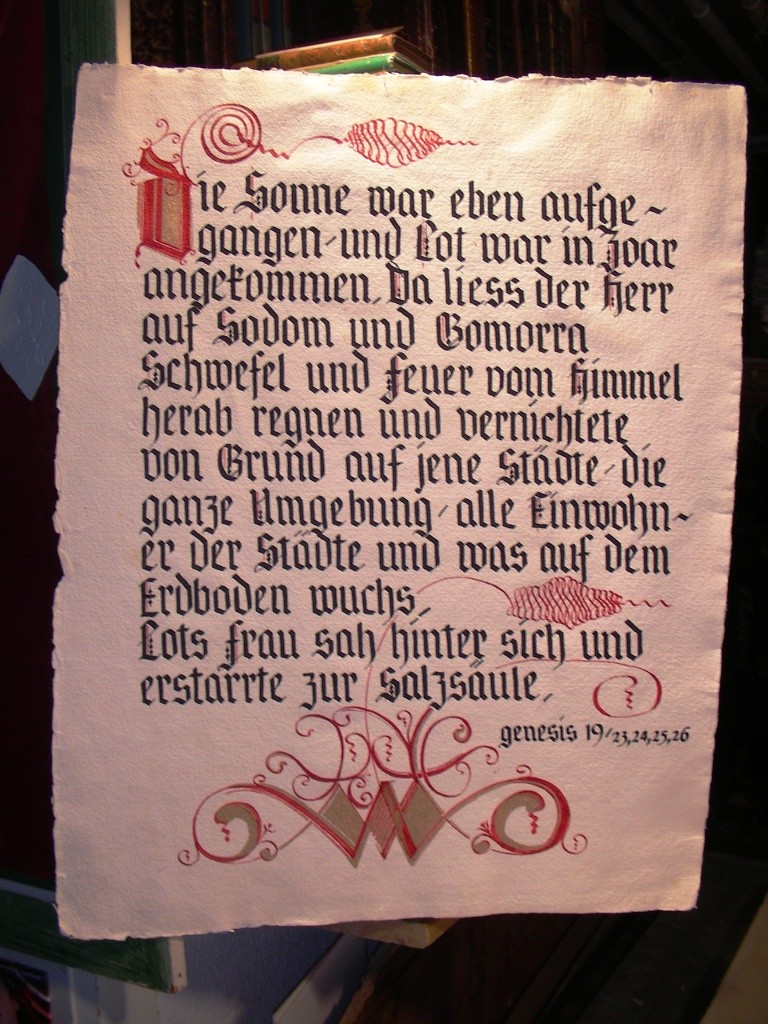 Die Sonne war eben aufge-
gangen, und Lot war in Zoar
angekommen. Da liess der Herr
auf Sodom und Gomorra
Schwefel und Feuer vom Himmel
herab regnen und vernichtete
von Grund auf jene Städte, die
ganze Umgebung, alle Einwohn-
er der Städte und was auf dem
Erdboden wuchs.
Lots Frau sah hinter sich und
erstarrte zur Salzsäule.
genesis 19/23,24,25,26